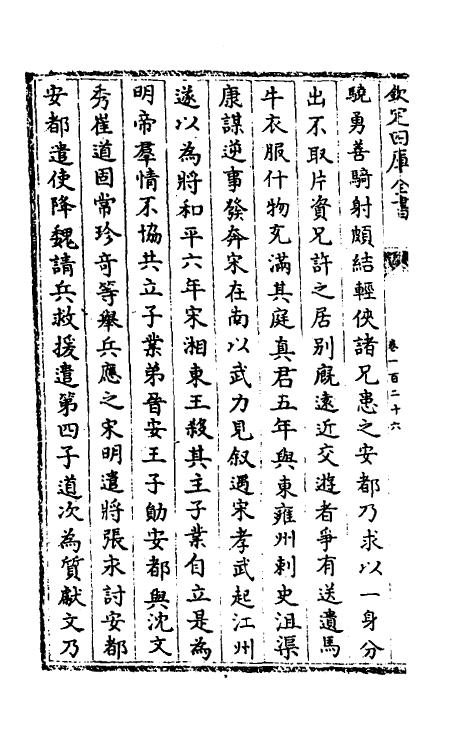 欽定四庫全書
卷一百二十六
驍勇善騎射頗結輕俠諸兄患之安都乃求以一身分
出不取片資兄許之居别廐遠近交遊者爭有送遺馬
牛衣服什物充滿其庭真君五年與東雍州刺史沮渠
康謀逆事發奔宋在南以武力見叙遇宋孝武起江州
遂以為將和平六年宋湘東王殺其主子業自立是為
明帝羣情不協共立子業弟晉安王子勛安都與沈文
秀崔道固常珍竒等舉兵應之宋明遣將張永討安都
安都遣使降魏請兵救援遣第四子道次為質獻文乃